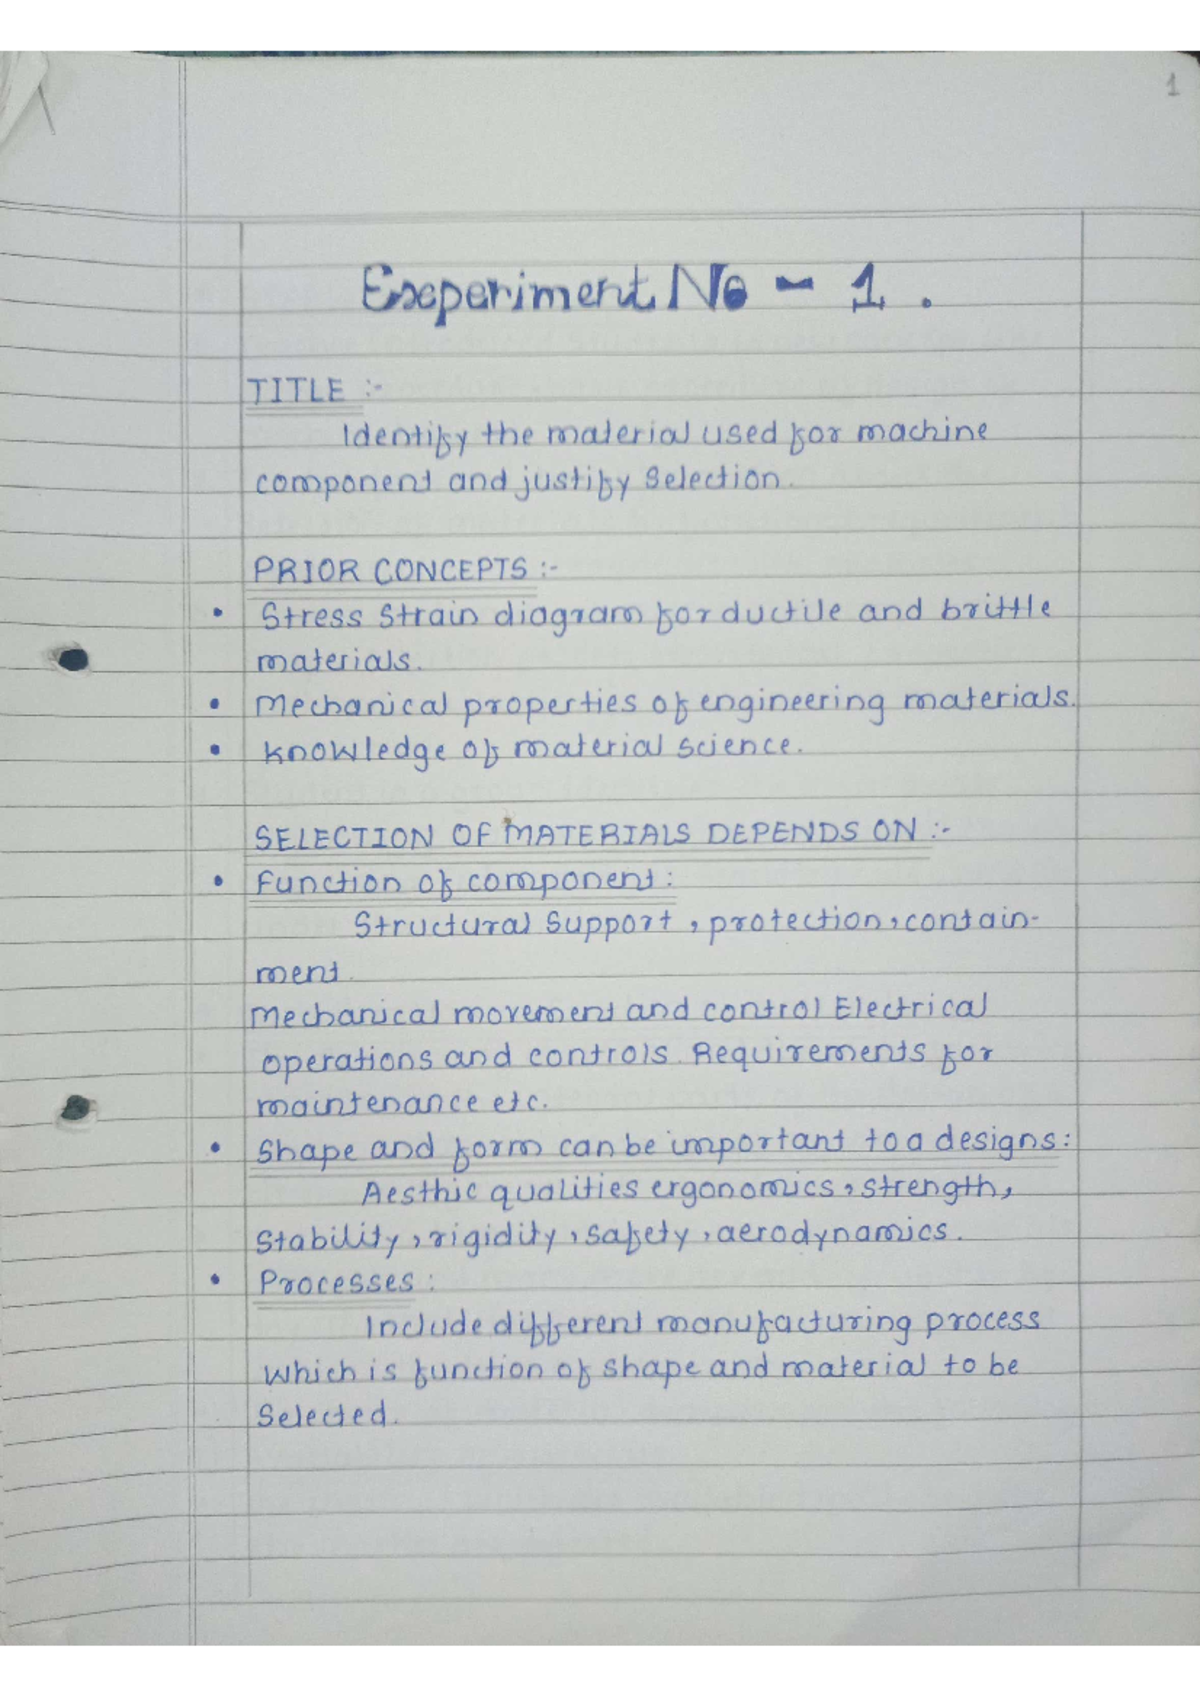 1
Experiment No - 1.
TITLE :-
Identify the material used for machine
component and justify Selection.
PRIOR CONCEPTS :-
• Stress Strain diagram for ductile and brittle
materials.
• Mechanical properties of engineering materials.
• Knowledge of material science.
SELECTION OF MATERIALS DEPENDS ON :-
• Function of component :
Structural Support, protection, contain-
ment.
Mechanical movement and control Electrical
operations and controls. Requirements for
maintenance etc.
• Shape and form can be important to a designs :
Aesthic qualities ergonomics, strength,
Stability, rigidity, safety, aerodynamics.
• Processes :
Include different manufacturing process
Which is function of shape and material to be
Selected.